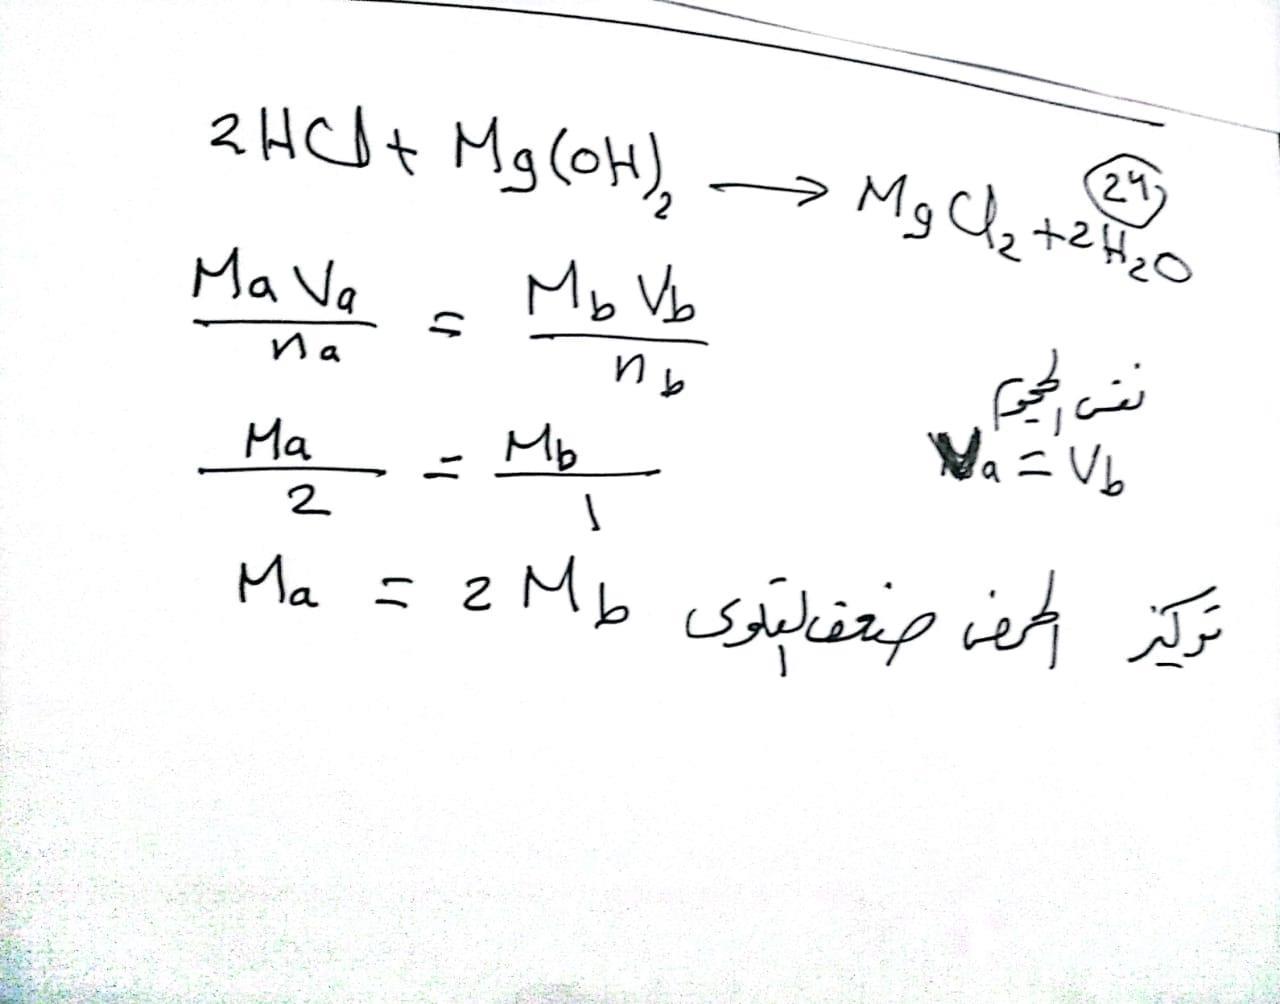 24
2HCl + Mg(OH)₂ → MgCl₂ + 2H₂O
MaVa/na = MbVb/nb
نفس الحجم
Va = Vb
Ma/2 = Mb/1
Ma = 2Mb
تركيز الحمض ضعف القلوى